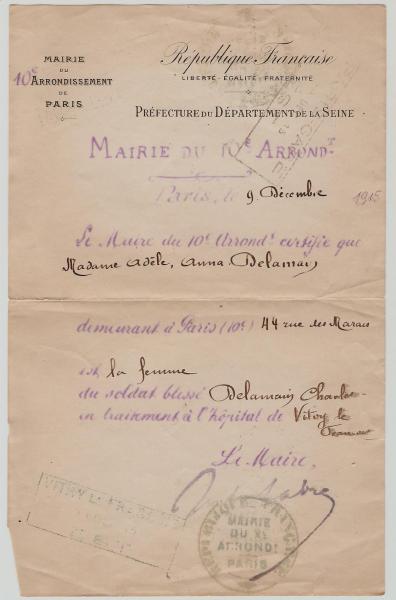 MAIRIE
DU
10e ARRONDISSEMENT
DE
PARIS
République Française
LIBERTÉ - ÉGALITÉ - FRATERNITÉ
PRÉFECTURE DU DÉPARTEMENT DE LA SEINE
MAIRIE DU 10E ARRONDT
Paris, le 9 Décembre 1915
Le Maire du 10e Arrondt certifie que
Madame Adèle, Anna Delamain
demeurant à Paris (10e) 44 rue des Marais
est la femme
du soldat blessé Delamain Charles
en traitement à l'hôpital de Vitry le
Le Maire,
VITRY LE FRANÇOIS
RÉPUBLIQUE FRANÇAISE
MAIRIE
DU Xe
ARRONDT
PARIS